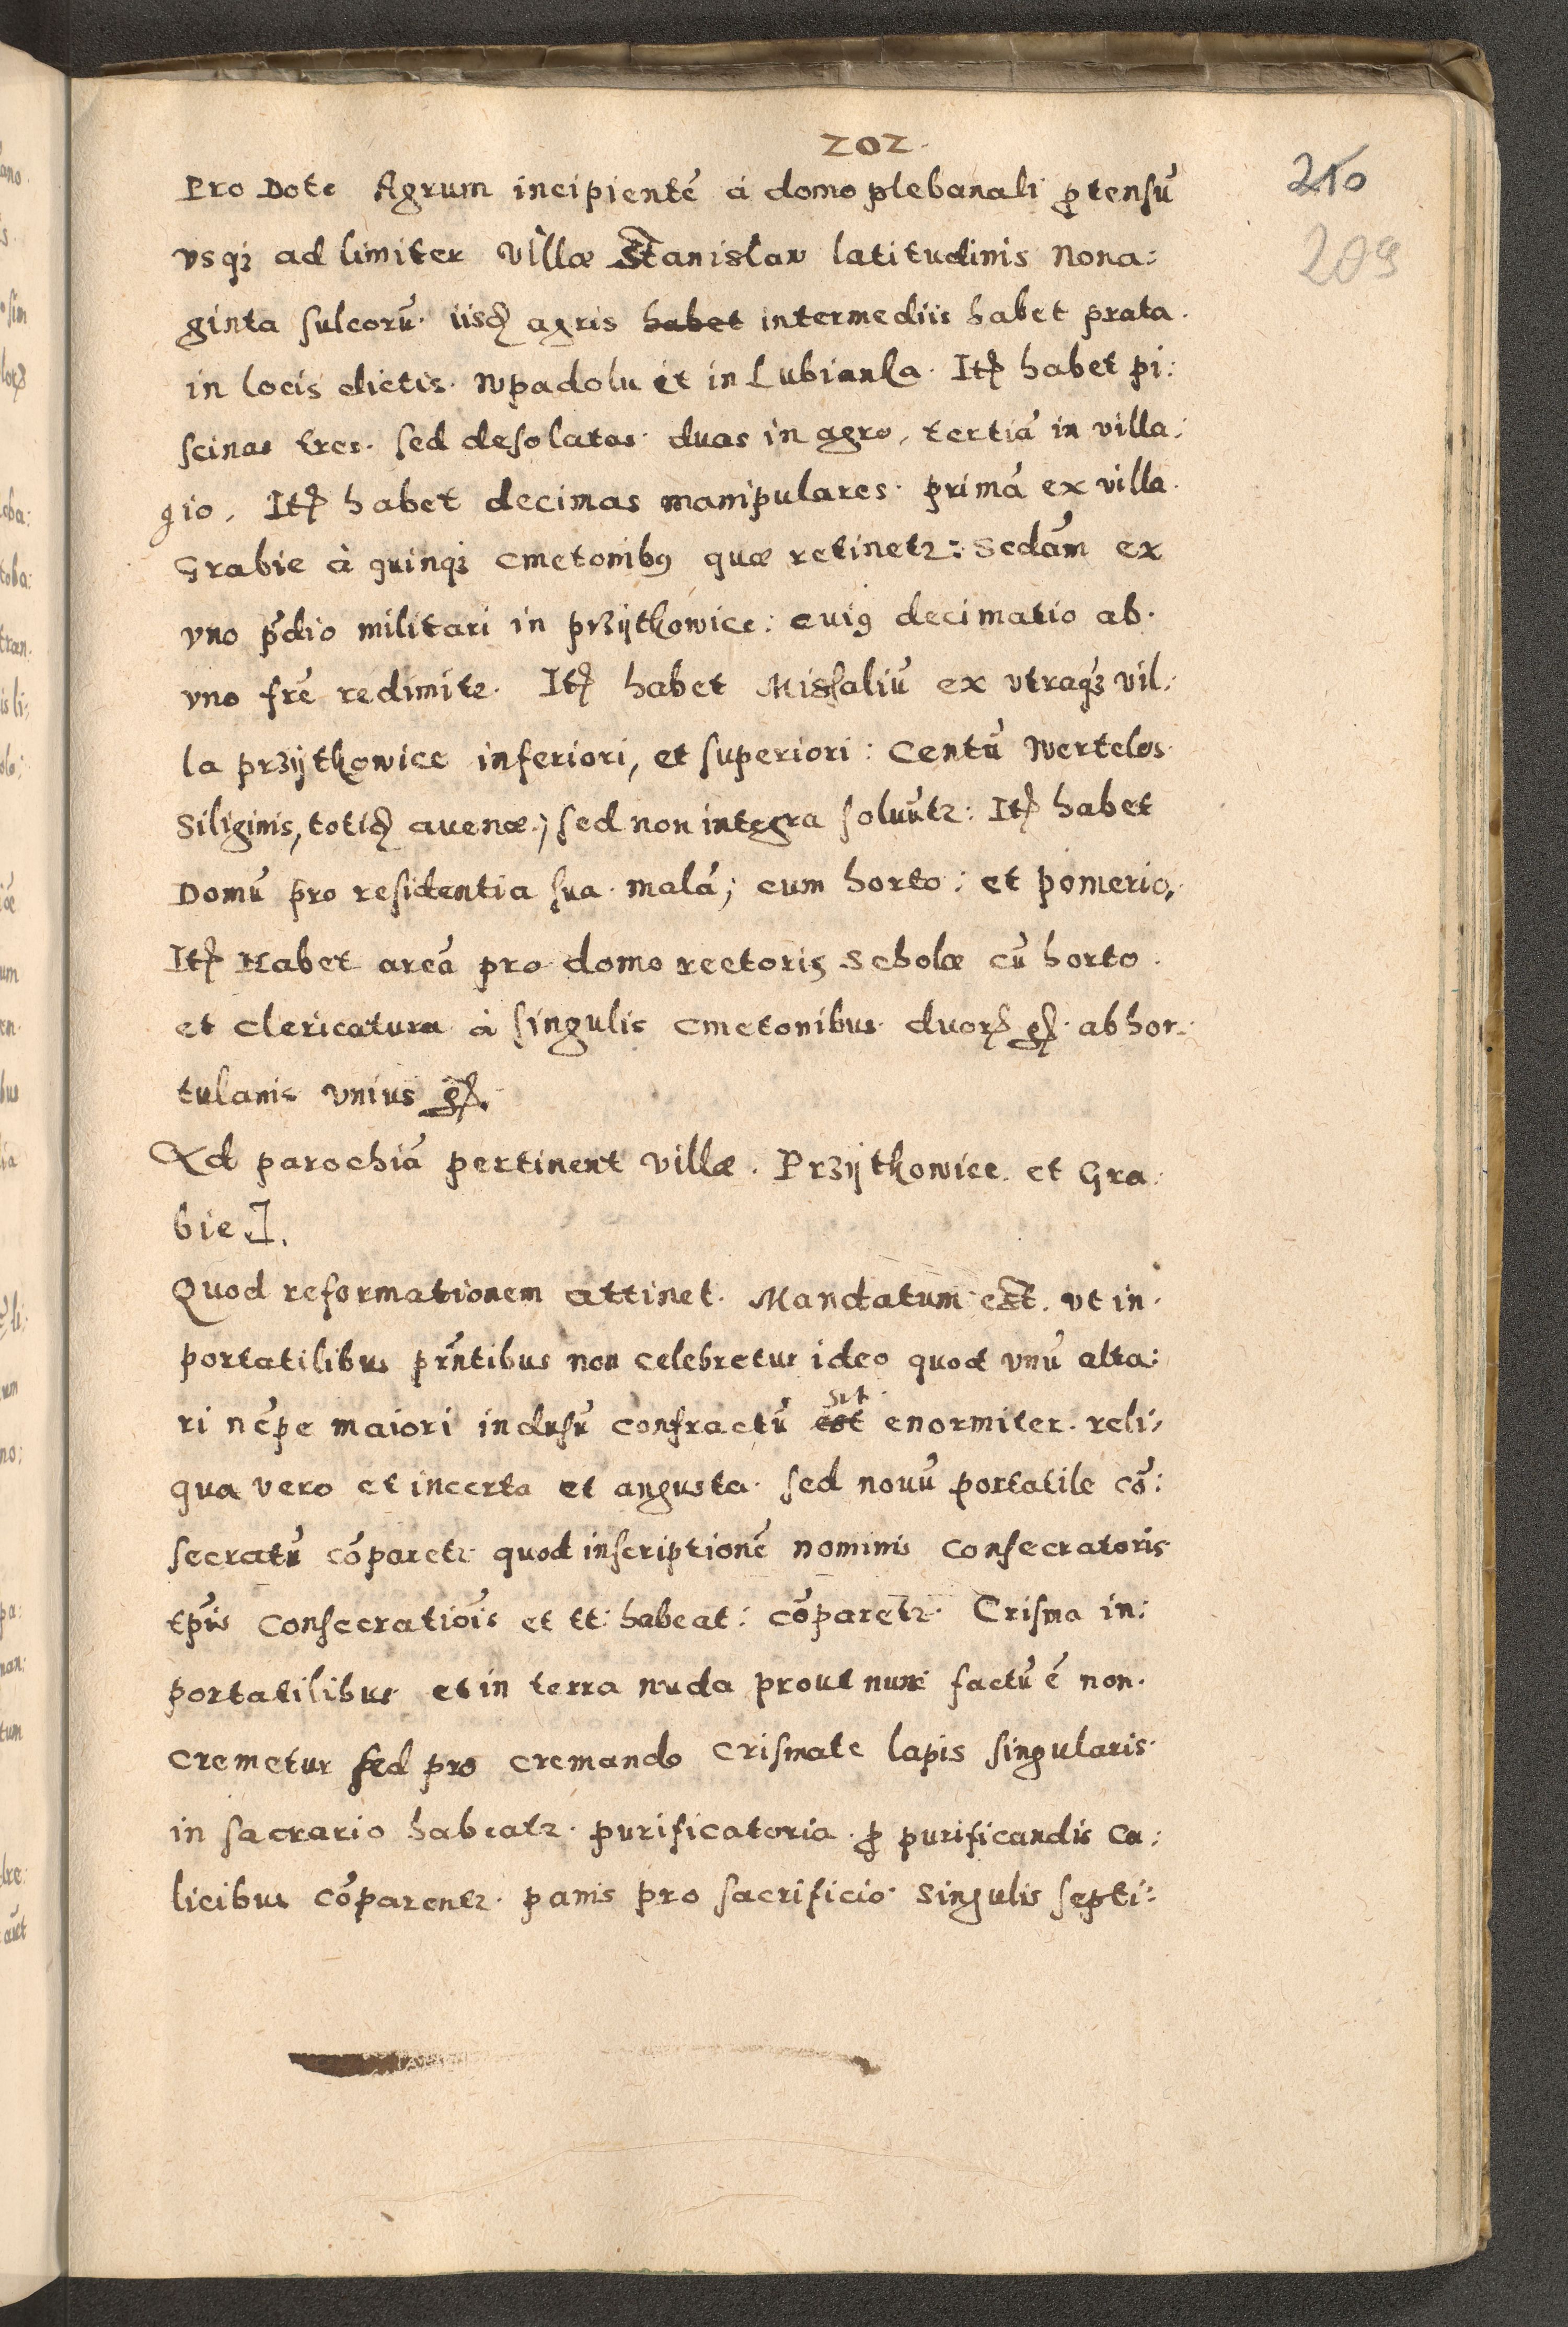 202.
210
209
Pro Dote Agrum incipientē à domo plebanali ꝓtensū
vsqꝫ ad limiter Villæ Stanislaw latitudinis Nona:
ginta sulcorū. iisdꝫ agris habet intermediis habet prata.
in locis dictis. Wpadolu et in Lubianka. Itꝫ habet pi:
scinas tres. sed desolatas. duas in agro, tertiā in villa:
gio. Itꝫ habet decimas manipulares. primā ex villa.
Grabie à quinqꝫ Cmetonibꝰ quæ retinetr: Scdām ex
vno p̄dio militari in przÿtkowice: cuiꝰ decimatio ab.
vno frē redimitr. Itꝫ habet Missaliū ex vtraqꝫ vil:
la przÿtkowice inferiori, et superiori: Centū Wertelos.
Siliginis, totidꝫ auenæ; sed non integra soluūtr: Itꝫ habet
Domū pro residentia sua malā; cum horto: et pomerio.
Itꝫ Habet areā pro domo rectoris Scholæ cū horto.
et clericatura à singulis Cmetonibus. duorꝫ gꝫ. ab hor-
tulanis vnius gꝫ.
Ad parochiā pertinent villæ. Przÿtkowice. et Gra:
bie].
Quod reformationem attinet. Mandatum est. vt in.
portatilibus pr̄ntibus non celebretur ideo quod vnū alta:
ri nēpe maiori inclusū confractū est sit enormiter. reli:
qua vero et incerta et angusta. sed nouū portatile cō:
secratū cōparetr quod inscriptionē nominis consecratoris
tp̄is Consecratiōis et tt: habeat: cōparetr. Crisma in:
portatilibus et in terra nuda prout nunc factū ē non.
cremetur sed pro cremando crismate lapis singularis.
in sacrario habeatr. purificatoria ꝓ purificandis Ca:
licibus cōparentr. panis pro sacrificio. singulis septi: